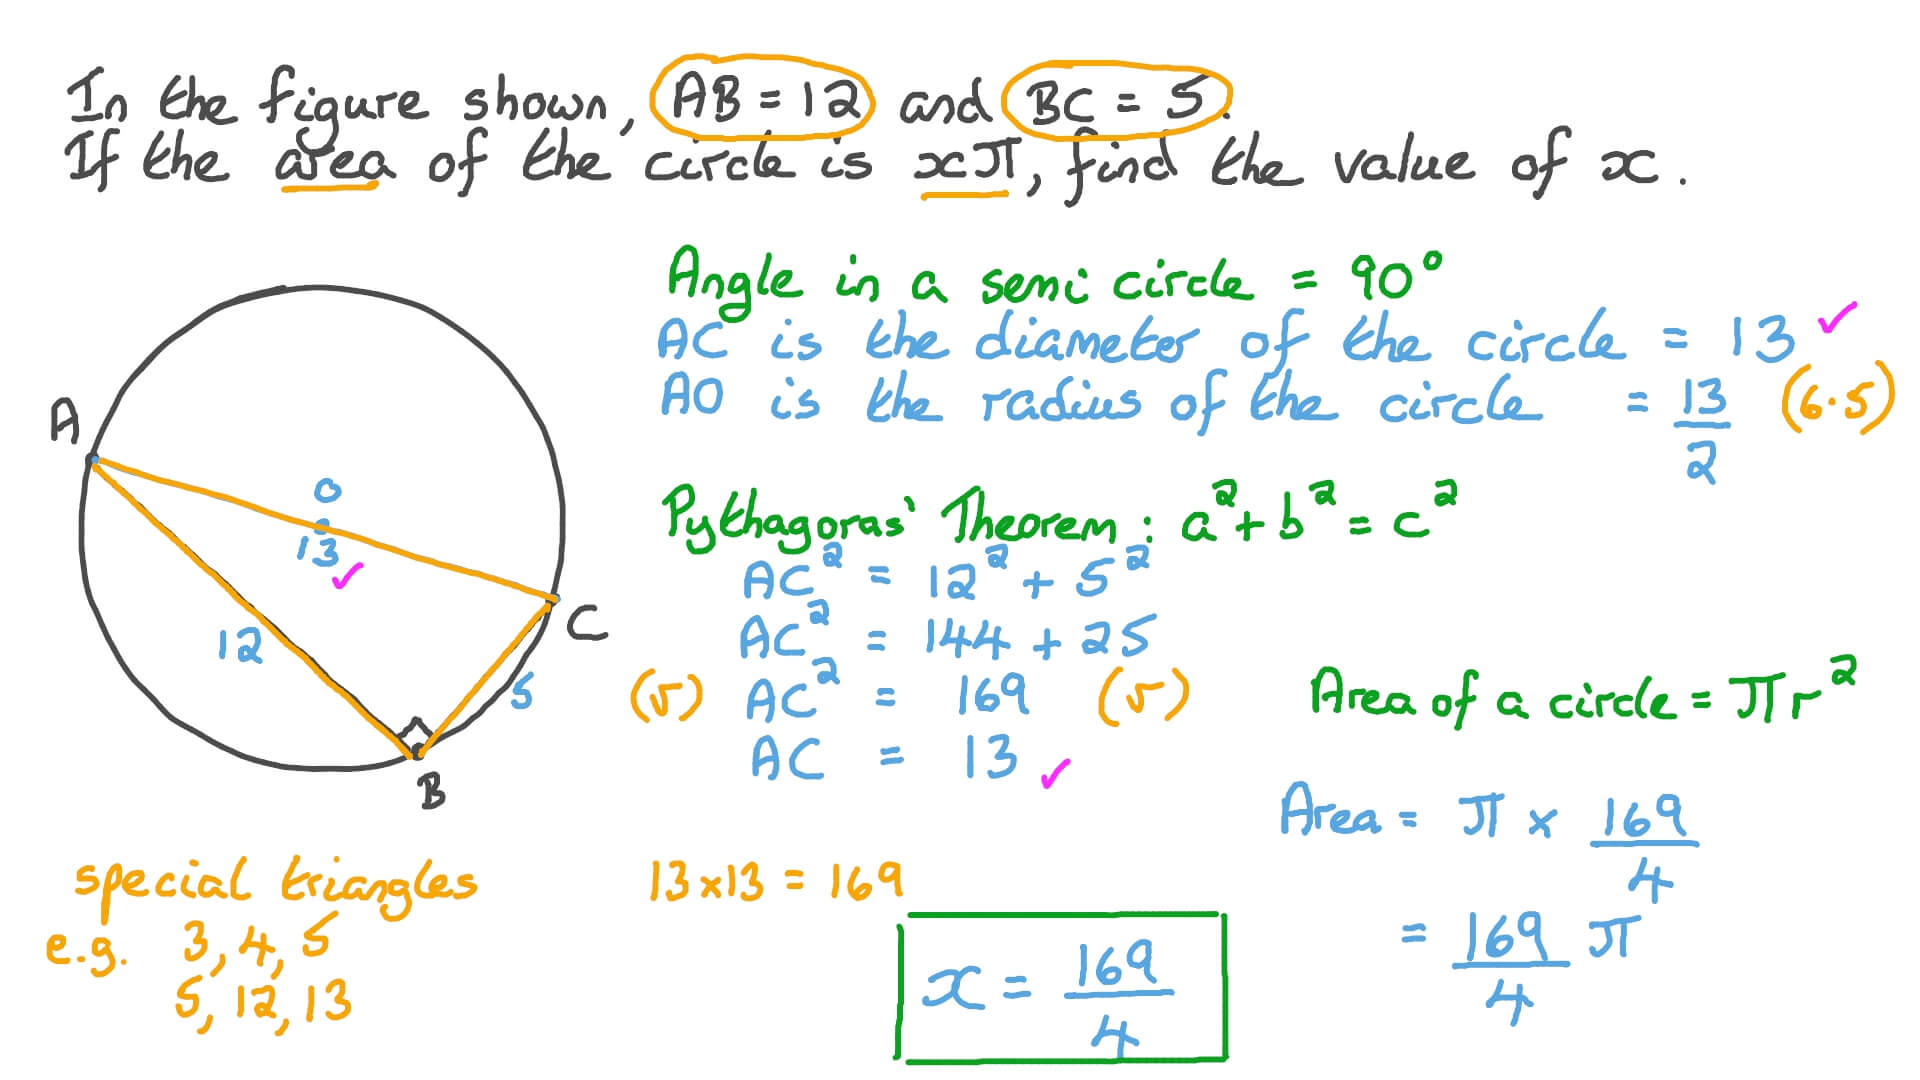 In the figure shown, AB = 12 and BC = 5.
If the area of the circle is xπ, find the value of x.
Angle in a semi circle = 90°
AC is the diameter of the circle = 13 ✓
AO is the radius of the circle = 13/2 (6.5)
A
O
13 ✓
12
C
5
B
Pythagoras' Theorem: a² + b² = c²
AC² = 12² + 5²
AC² = 144 + 25
(√) AC² = 169 (√)
AC = 13 ✓
Area of a circle = πr²
Area = π × 169/4
= 169/4 π
special triangles
e.g. 3, 4, 5
5, 12, 13
13×13 = 169
x = 169/4